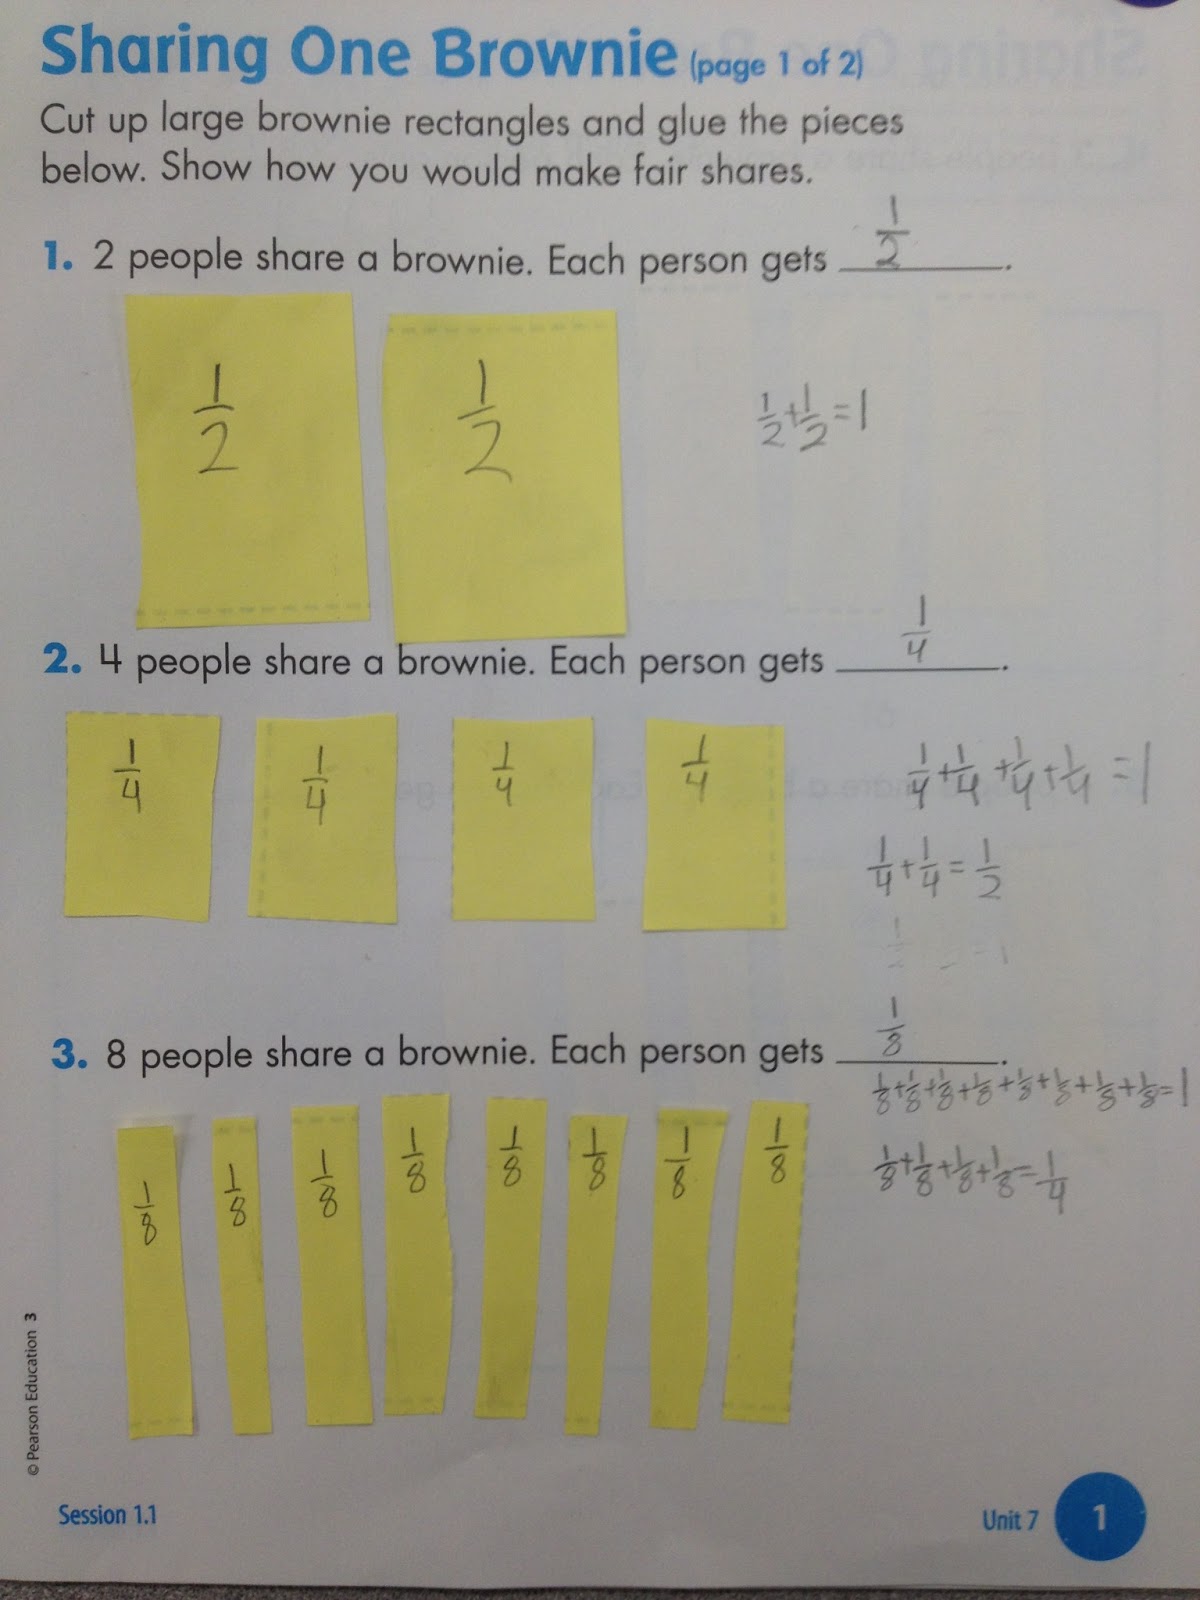 Sharing One Brownie (page 1 of 2)
Cut up large brownie rectangles and glue the pieces
below. Show how you would make fair shares.
1. 2 people share a brownie. Each person gets 1/2.
1/2 1/2
1/2 + 1/2 = 1
2. 4 people share a brownie. Each person gets 1/4.
1/4 1/4 1/4 1/4
1/4 + 1/4 + 1/4 + 1/4 = 1
1/4 + 1/4 = 1/2
3. 8 people share a brownie. Each person gets 1/8.
1/8 + 1/8 + 1/8 + 1/8 + 1/8 + 1/8 + 1/8 + 1/8 = 1
1/8 1/8 1/8 1/8 1/8 1/8 1/8 1/8
1/8 + 1/8 + 1/8 + 1/8 = 1/4
© Pearson Education 3
Session 1.1
Unit 7 1